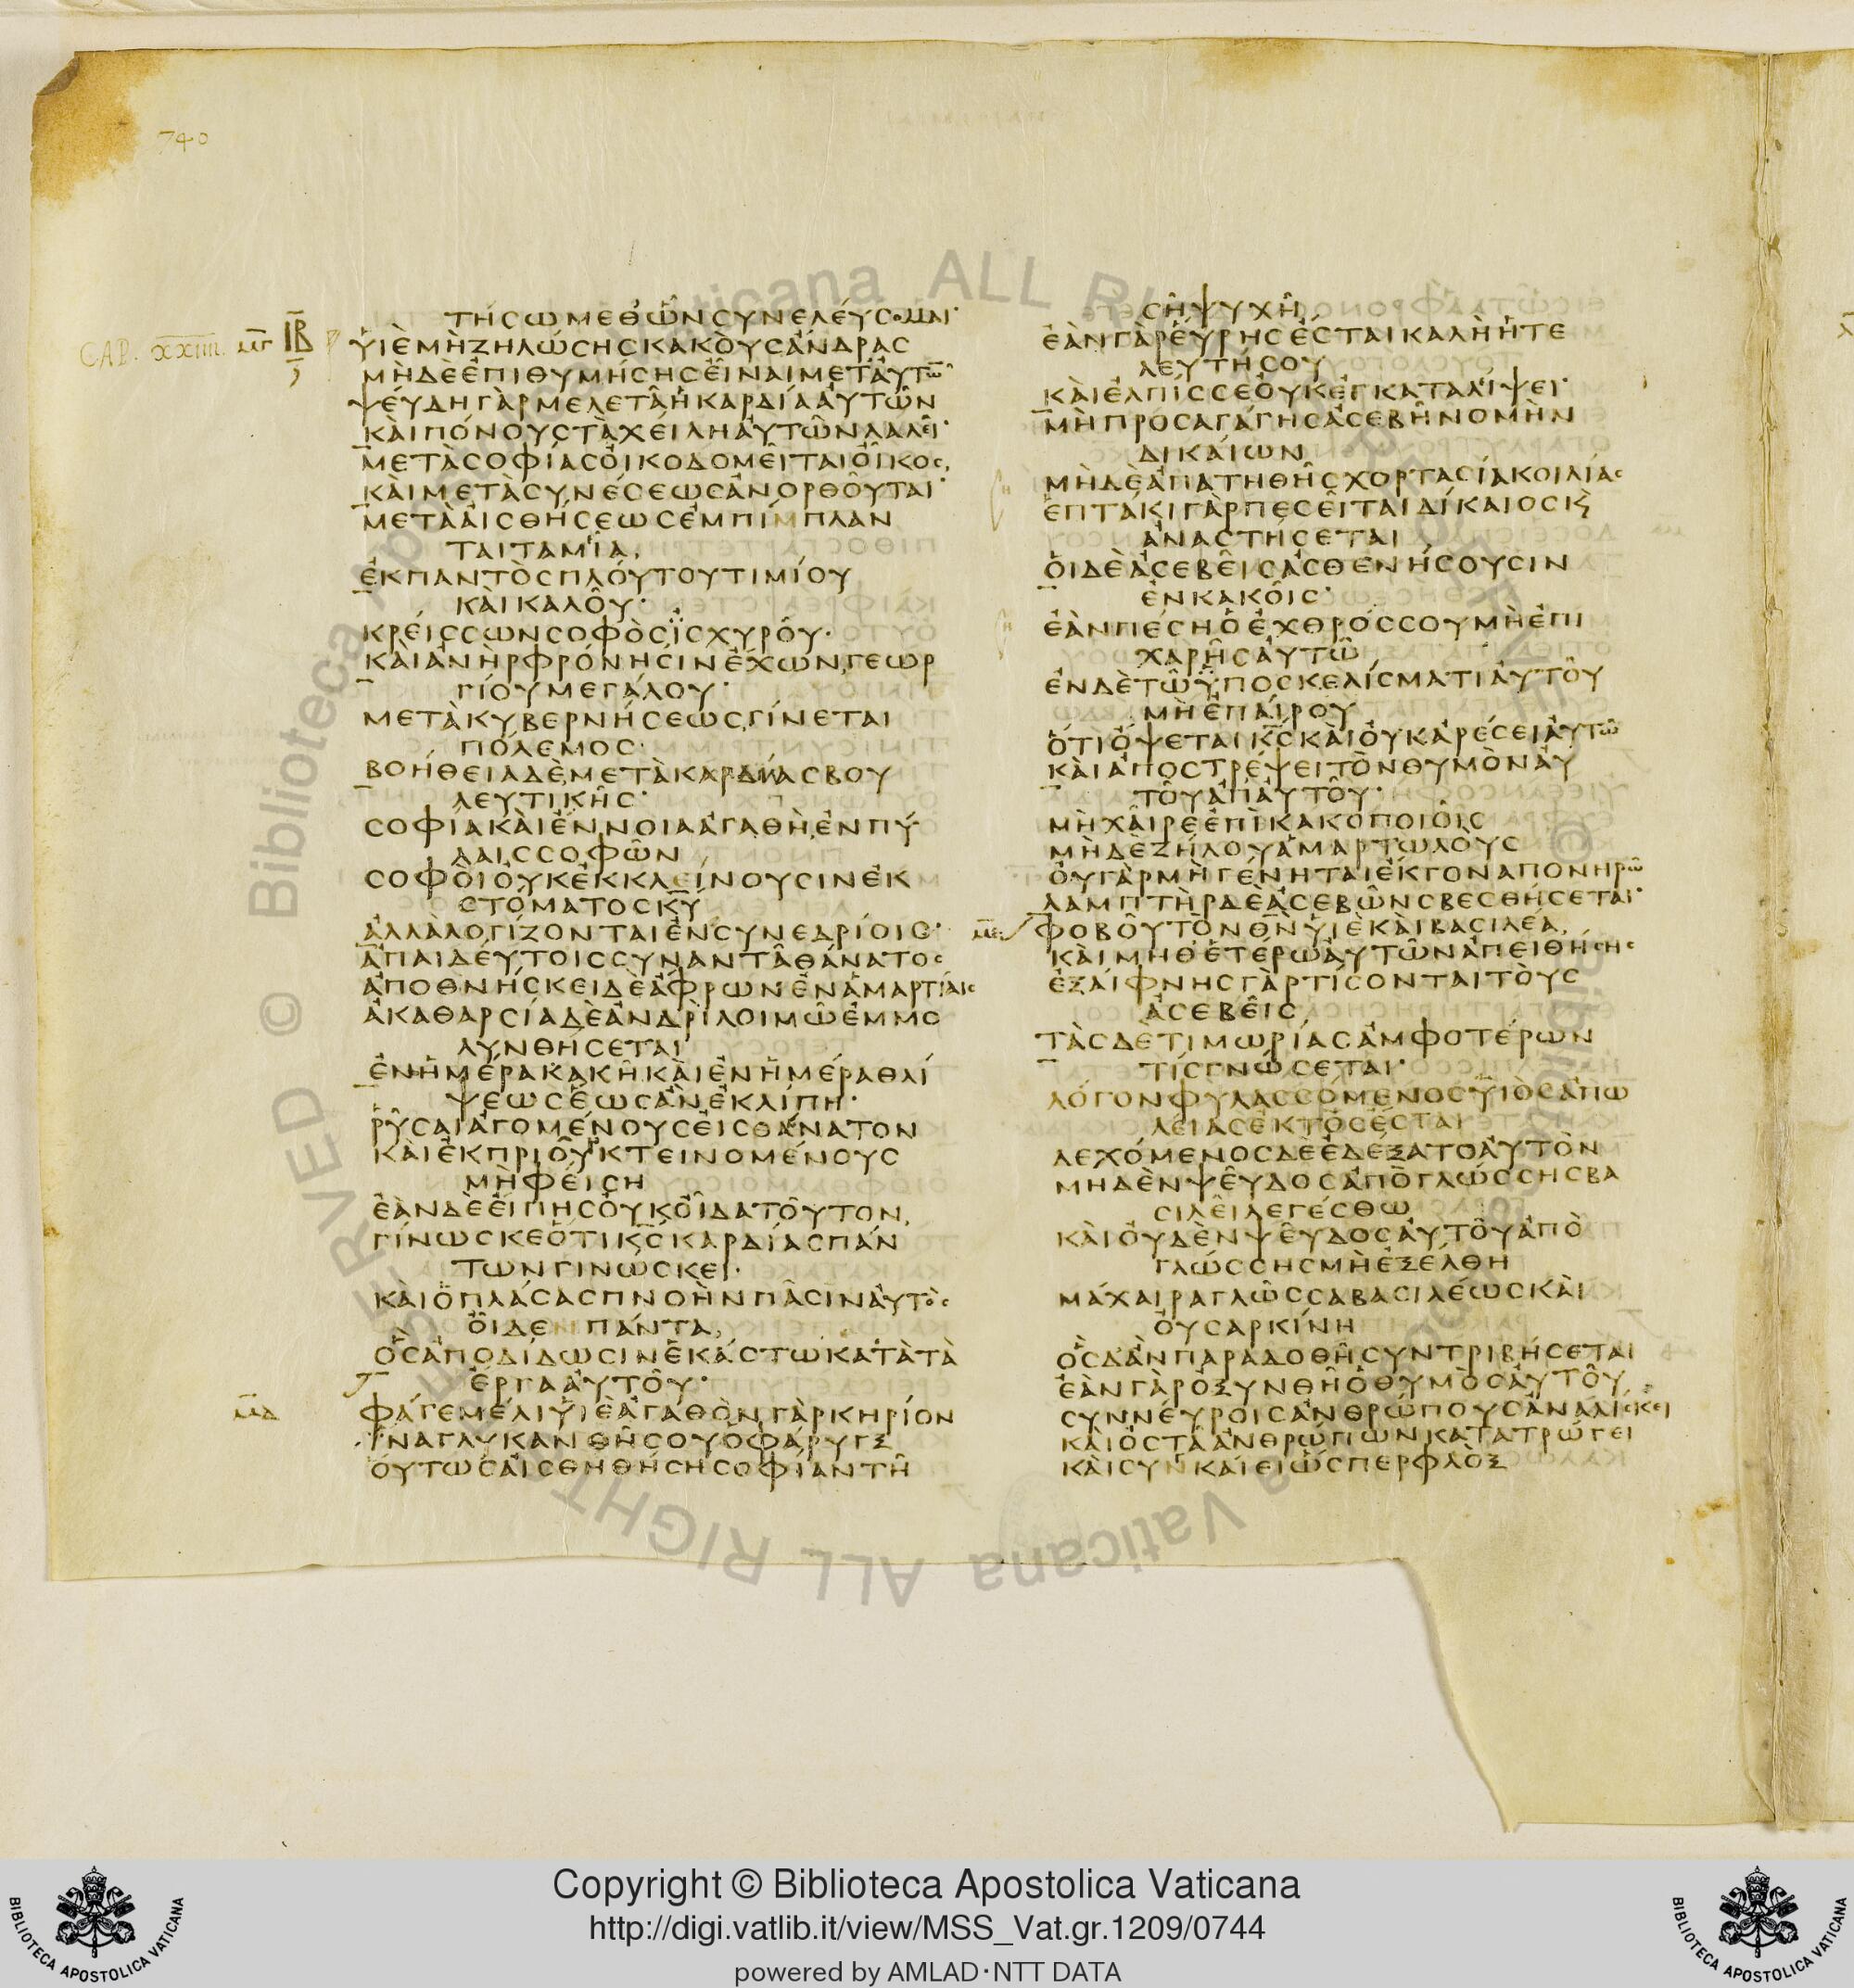 740
CAP. XXIIII. ΜΓ ΙΒ
ΤΗΣΩΜΕΘΩΝΣΥΝΕΛΕΥΣΟΜΑΙ
ΥΙΕΜΗΖΗΛΩΣΗΣΚΑΚΟΥΣΑΝΔΡΑΣ
ΜΗΔΕΕΠΙΘΥΜΗΣΗΣΕΙΝΑΙΜΕΤΑΥΤΩ̅
ΨΕΥΔΗΓΑΡΜΕΛΕΤΑΗΚΑΡΔΙΑΑΥΤΩΝ
ΚΑΙΠΟΝΟΥΣΤΑΧΕΙΛΗΑΥΤΩΝΛΑΛΕΙ
ΜΕΤΑΣΟΦΙΑΣΟΙΚΟΔΟΜΕΙΤΑΙΟΙΚΟΣ
ΚΑΙΜΕΤΑΣΥΝΕΣΕΩΣΑΝΟΡΘΟΥΤΑΙ
ΜΕΤΑΑΙΣΘΗΣΕΩΣΕΜΠΙΜΠΛΑΝ
ΤΑΙΤΑΜΙΑ
ΕΚΠΑΝΤΟΣΠΛΟΥΤΟΥΤΙΜΙΟΥ
ΚΑΙΚΑΛΟΥ
ΚΡΕΙΣΣΩΝΣΟΦΟΣΪΣΧΥΡΟΥ
ΚΑΙΑΝΗΡΦΡΟΝΗΣΙΝΕΧΩΝΓΕΩΡ
ΓΙΟΥΜΕΓΑΛΟΥ
ΜΕΤΑΚΥΒΕΡΝΗΣΕΩΣΓΙΝΕΤΑΙ
ΠΟΛΕΜΟΣ
ΒΟΗΘΕΙΑΔΕΜΕΤΑΚΑΡΔΙΑΣΒΟΥ
ΛΕΥΤΙΚΗΣ
ΣΟΦΙΑΚΑΙΕΝΝΟΙΑΑΓΑΘΗΕΝΠΥ
ΛΑΙΣΣΟΦΩΝ
ΣΟΦΟΙΟΥΚΕΚΚΛΕΙΝΟΥΣΙΝΕΚ
ΣΤΟΜΑΤΟΣΚ̅Υ̅
ΑΛΛΑΛΟΓΙΖΟΝΤΑΙΕΝΣΥΝΕΔΡΙΟΙΣ
ΑΠΑΙΔΕΥΤΟΙΣΣΥΝΑΝΤΑΘΑΝΑΤΟΣ
ΑΠΟΘΝΗΣΚΕΙΔΕΑΦΡΩΝΕΝΑΜΑΡΤΙΑΙΣ
ΑΚΑΘΑΡΣΙΑΔΕΑΝΔΡΙΛΟΙΜΩΕΜΜΟ
ΛΥΝΘΗΣΕΤΑΙ
ΕΝΗΜΕΡΑΚΑΚΗΚΑΙΕΝΗΜΕΡΑΘΛΙ
ΨΕΩΣΕΩΣΑΝΕΚΛΙΠΗ
ΡΥΣΑΙΑΓΟΜΕΝΟΥΣΕΙΣΘΑΝΑΤΟΝ
ΚΑΙΕΚΠΡΙΟΥΚΤΕΙΝΟΜΕΝΟΥΣ
ΜΗΦΕΙΣΗ
ΕΑΝΔΕΕΙΠΗΣΟΥΚΟΙΔΑΤΟΥΤΟΝ
ΓΙΝΩΣΚΕΟΤΙΚ̅Σ̅ΚΑΡΔΙΑΣΠΑΝ
ΤΩΝΓΙΝΩΣΚΕΙ
ΚΑΙΟΠΛΑΣΑΣΠΝΟΗΝΠΑΣΙΝΑΥΤΟΣ
ΟΙΔΕΝΠΑΝΤΑ
ΟΣΑΠΟΔΙΔΩΣΙΝΕΚΑΣΤΩΚΑΤΑΤΑ
ΕΡΓΑΑΥΤΟΥ
ΜΔ ΦΑΓΕΜΕΛΙΥΙΕΑΓΑΘΟΝΓΑΡΚΗΡΙΟΝ
ΙΝΑΓΛΥΚΑΝΘΗΣΟΥΟΦΑΡΥΓΞ
ΟΥΤΩΣΑΙΣΘΗΘΗΣΗΣΟΦΙΑΝΤΗ
ΣΗΨΥΧΗ
ΕΑΝΓΑΡΕΥΡΗΣΕΣΤΑΙΚΑΛΗΗΤΕ
ΛΕΥΤΗΣΟΥ
ΚΑΙΕΛΠΙΣΣΕΟΥΚΕΓΚΑΤΑΛΙΨΕΙ
ΜΗΠΡΟΣΑΓΑΓΗΣΑΣΕΒΗΝΟΜΗΝ
ΔΙΚΑΙΩΝ
ΜΗΔΕΑΠΑΤΗΘΗΣΧΟΡΤΑΣΙΑΚΟΙΛΙΑΣ
ΕΠΤΑΚΙΓΑΡΠΕΣΕΙΤΑΙΔΙΚΑΙΟΣΚ̀
ΑΝΑΣΤΗΣΕΤΑΙ
ΟΙΔΕΑΣΕΒΕΙΣΑΣΘΕΝΗΣΟΥΣΙΝ
ΕΝΚΑΚΟΙΣ
ΕΑΝΠΕΣΗΟΕΧΘΡΟΣΣΟΥΜΗΕΠΙ
ΧΑΡΗΣΑΥΤΩ
ΕΝΔΕΤΩΫΠΟΣΚΕΛΙΣΜΑΤΙΑΥΤΟΥ
ΜΗΕΠΑΙΡΟΥ
ΟΤΙΟΨΕΤΑΙΚ̅Σ̅ΚΑΙΟΥΚΑΡΕΣΕΙΑΥΤΩ
ΚΑΙΑΠΟΣΤΡΕΨΕΙΤΟΝΘΥΜΟΝΑΥ
ΤΟΥΑΠΑΥΤΟΥ
ΜΗΧΑΙΡΕΕΠΙΚΑΚΟΠΟΙΟΙΣ
ΜΗΔΕΖΗΛΟΥΑΜΑΡΤΩΛΟΥΣ
ΟΥΓΑΡΜΗΓΕΝΗΤΑΙΕΚΓΟΝΑΠΟΝΗΡΩ̅
ΛΑΜΠΤΗΡΔΕΑΣΕΒΩΝΣΒΕΣΘΗΣΕΤΑΙ
ΜΕ ΦΟΒΟΥΤΟΝΘ̅Ν̅ΥΙΕΚΑΙΒΑΣΙΛΕΑ
ΚΑΙΜΗΘΕΤΕΡΩΑΥΤΩΝΑΠΕΙΘΗΣΗΣ
ΕΞΑΙΦΝΗΣΓΑΡΤΙΣΟΝΤΑΙΤΟΥΣ
ΑΣΕΒΕΙΣ
ΤΑΣΔΕΤΙΜΩΡΙΑΣΑΜΦΟΤΕΡΩΝ
ΤΙΣΓΝΩΣΕΤΑΙ
ΛΟΓΟΝΦΥΛΑΣΣΟΜΕΝΟΣΥΙΟΣΑΠΩ
ΛΕΙΑΣΕΚΤΟΣΕΣΤΑΙ
ΔΕΧΟΜΕΝΟΣΔΕΕΔΕΞΑΤΟΑΥΤΟΝ
ΜΗΔΕΝΨΕΥΔΟΣΑΠΟΓΛΩΣΣΗΣΒΑ
ΣΙΛΕΙΛΕΓΕΣΘΩ
ΚΑΙΟΥΔΕΝΨΕΥΔΟΣΑΥΤΟΥΑΠΟ
ΓΛΩΣΣΗΣΜΗΕΞΕΛΘΗ
ΜΑΧΑΙΡΑΓΛΩΣΣΑΒΑΣΙΛΕΩΣΚΑΙ
ΟΥΣΑΡΚΙΝΗ
ΟΣΔΑΝΠΑΡΑΔΟΘΗΣΥΝΤΡΙΒΗΣΕΤΑΙ
ΕΑΝΓΑΡΟΞΥΝΘΗΟΘΥΜΟΣΑΥΤΟΥ
ΣΥΝΝΕΥΡΟΙΣΑΝΘΡΩΠΟΥΣΑΝΑΛΙΣΚΕΙ
ΚΑΙΟΣΤΑΑΝΘΡΩΠΩΝΚΑΤΑΤΡΩΓΕΙ
ΚΑΙΣΥΝΚΑΙΕΙΩΣΠΕΡΦΛΟΞ
Copyright © Biblioteca Apostolica Vaticana
http://digi.vatlib.it/view/MSS_Vat.gr.1209/0744
powered by AMLAD·NTT DATA
BIBLIOTECA APOSTOLICA VATICANA
BIBLIOTECA APOSTOLICA VATICANA